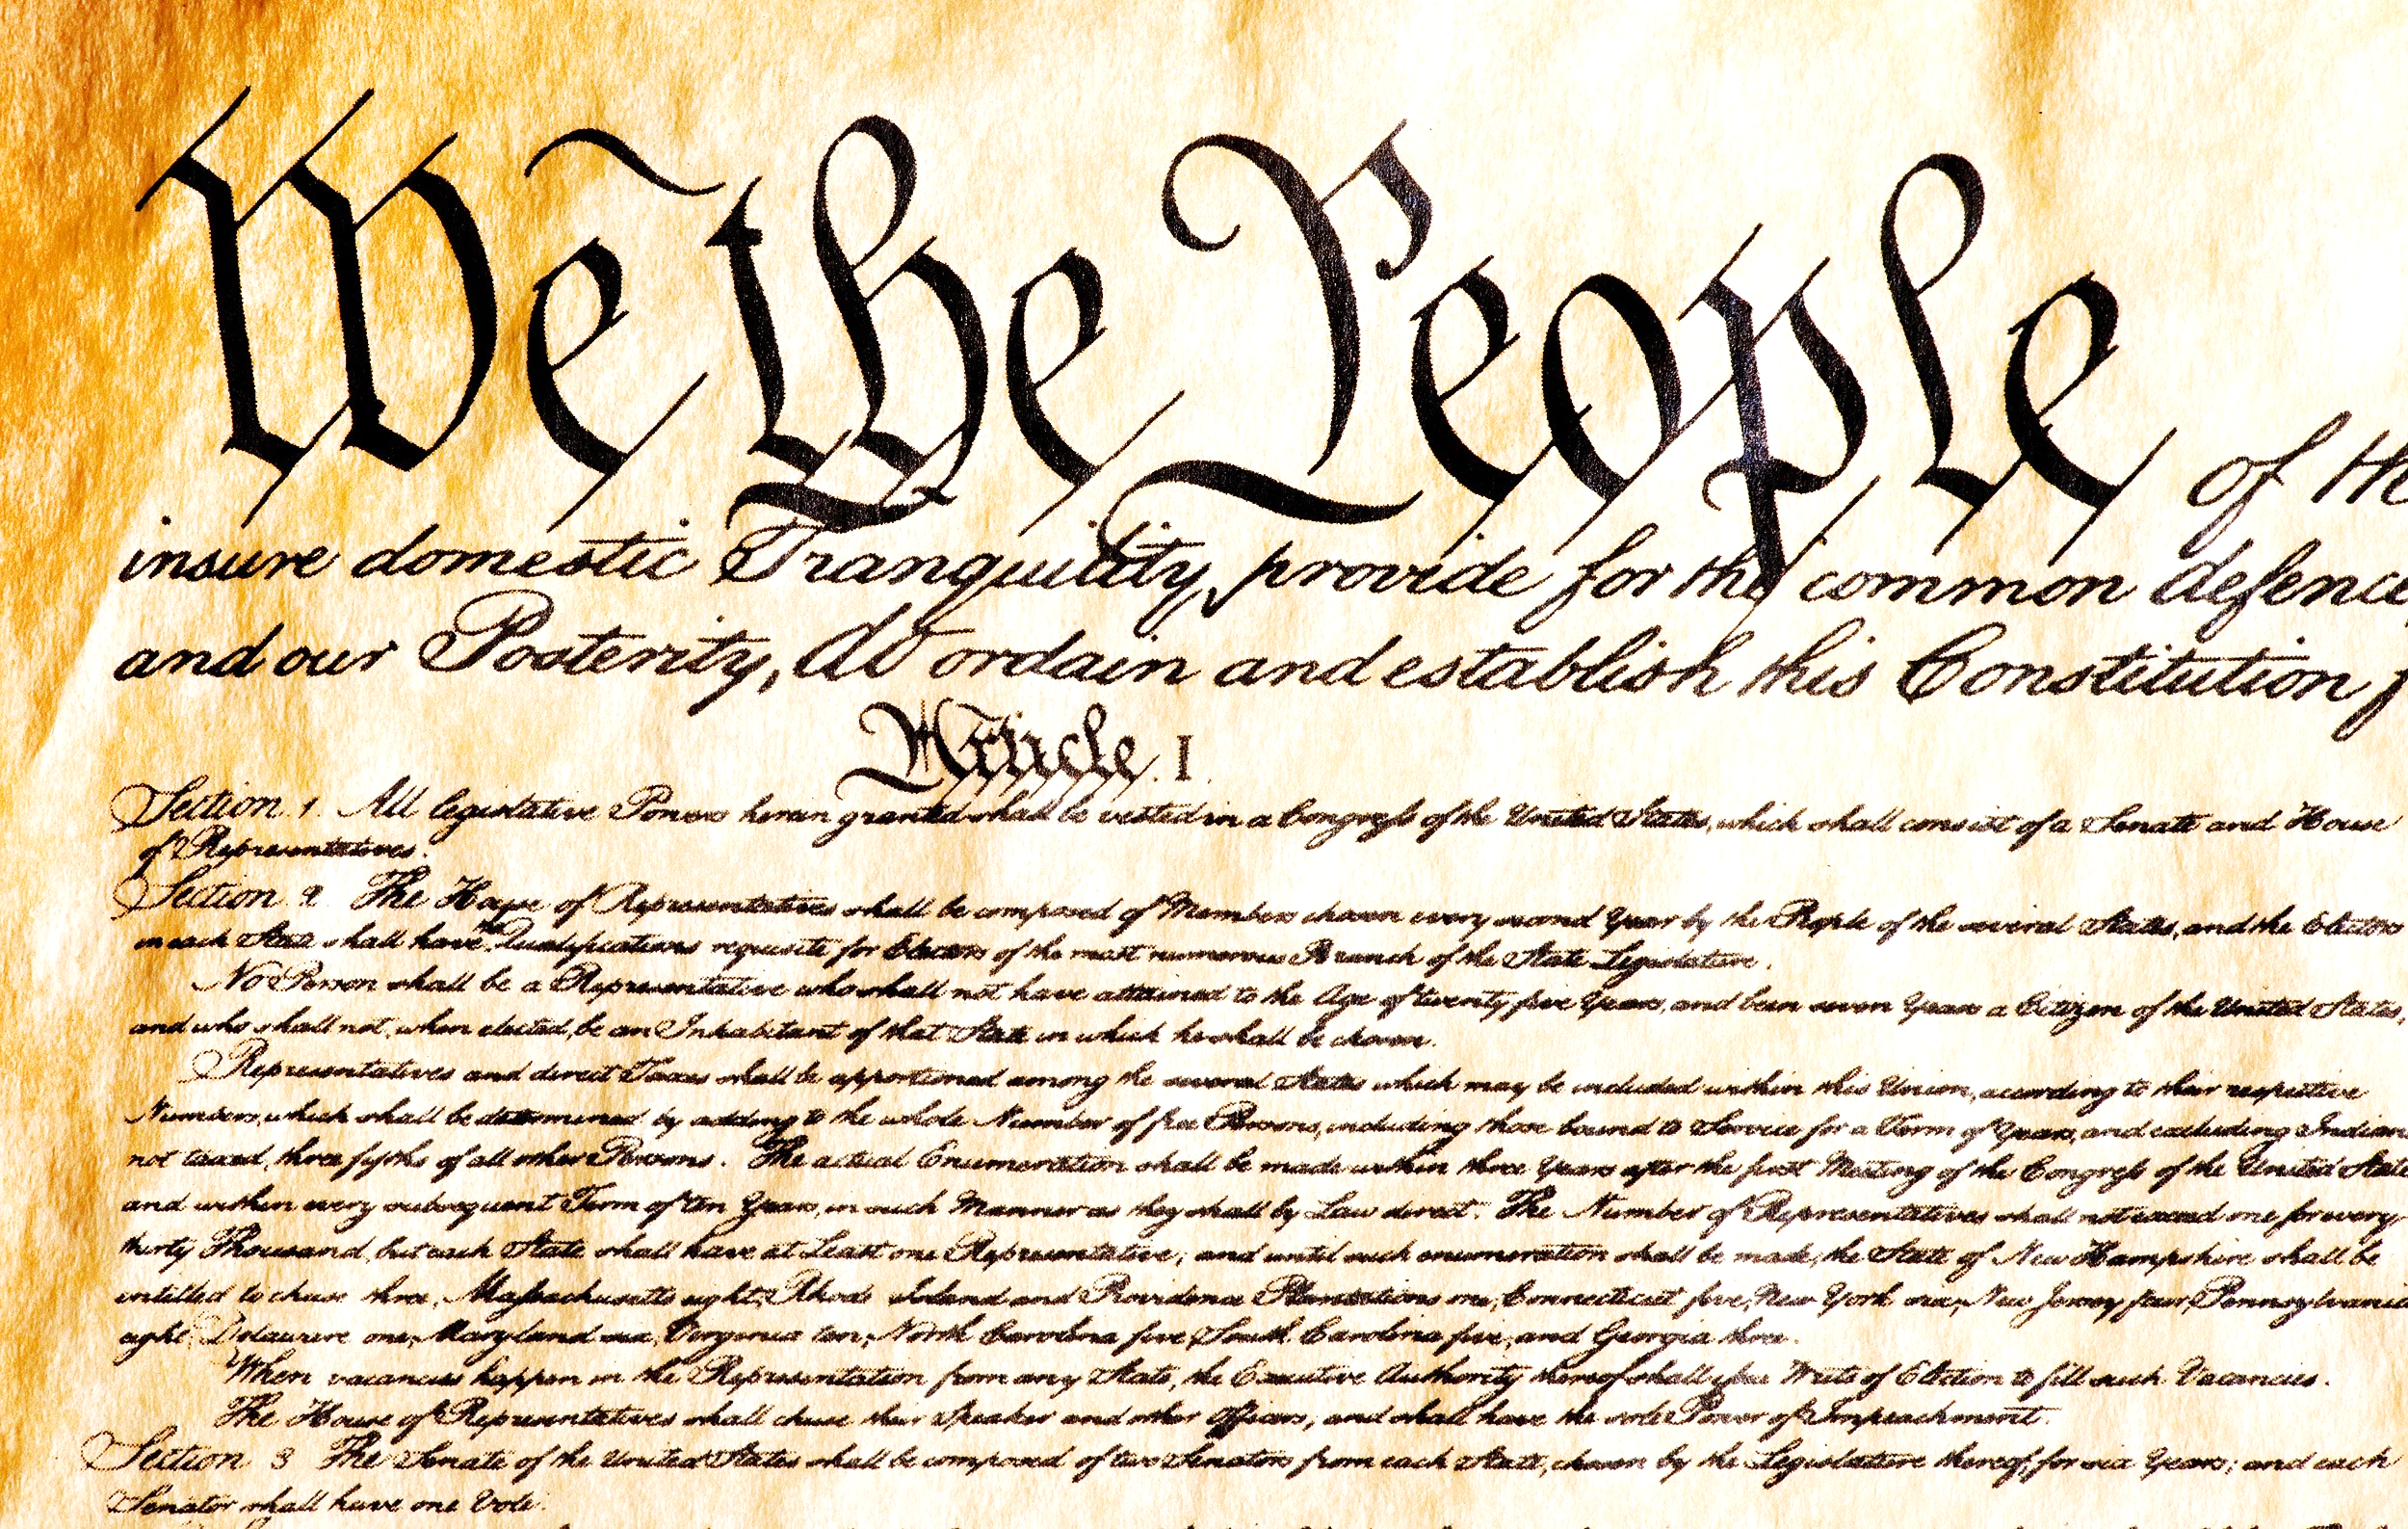 We the People of the
insure domestic Tranquility, provide for the common defence,
and our Posterity, do ordain and establish this Constitution f
Article. I.
Section. 1. All legislative Powers herein granted shall be vested in a Congress of the United States, which shall consist of a Senate and House
of Representatives.
Section. 2. The House of Representatives shall be composed of Members chosen every second Year by the People of the several States, and the Electors
in each State shall have the Qualifications requisite for Electors of the most numerous Branch of the State Legislature.
No Person shall be a Representative who shall not have attained to the Age of twenty five Years, and been seven Years a Citizen of the United States,
and who shall not, when elected, be an Inhabitant of that State in which he shall be chosen.
Representatives and direct Taxes shall be apportioned among the several States which may be included within this Union, according to their respective
Numbers, which shall be determined by adding to the whole Number of free Persons, including those bound to Service for a Term of Years, and excluding Indians
not taxed, three fifths of all other Persons. The actual Enumeration shall be made within three Years after the first Meeting of the Congress of the United State
and within every subsequent Term of ten Years, in such Manner as they shall by Law direct. The Number of Representatives shall not exceed one for every
thirty Thousand, but each State shall have at Least one Representative; and until such enumeration shall be made, the State of New Hampshire shall be
entitled to chuse three, Massachusetts eight, Rhode Island and Providence Plantations one, Connecticut five, New York six, New Jersey four, Pennsylvania
eight, Delaware one, Maryland six, Virginia ten, North Carolina five, South Carolina five, and Georgia three.
When vacancies happen in the Representation from any State, the Executive Authority thereof shall issue Writs of Election to fill such Vacancies.
The House of Representatives shall chuse their Speaker and other Officers; and shall have the sole Power of Impeachment.
Section. 3. The Senate of the United States shall be composed of two Senators from each State, chosen by the Legislature thereof, for six Years; and each
Senator shall have one Vote.